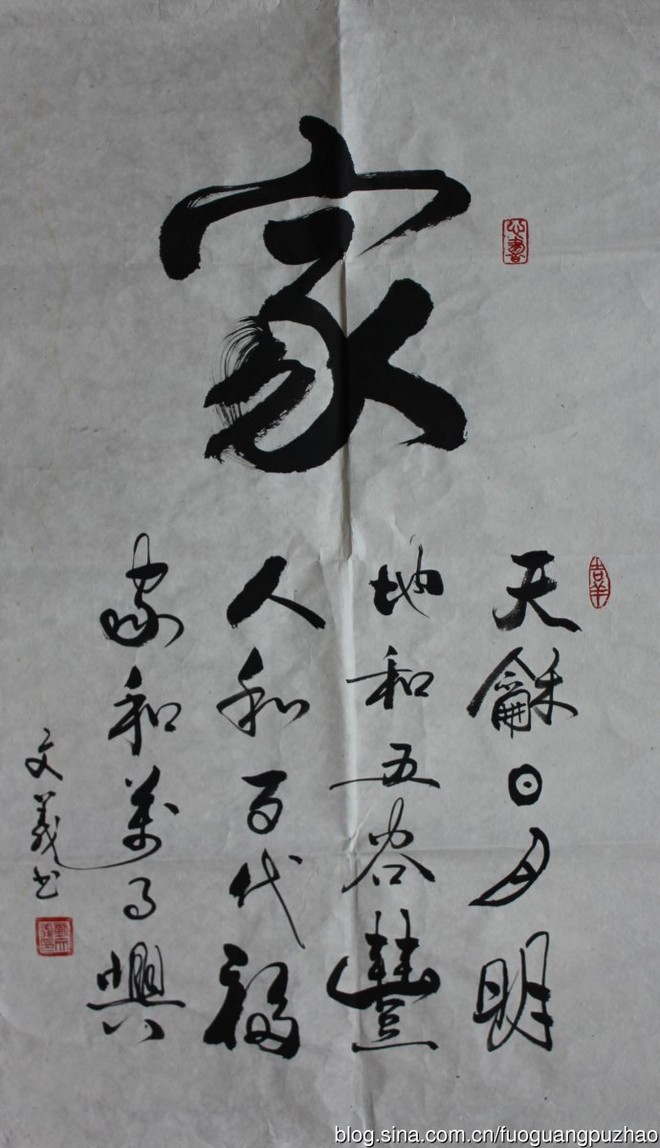 家
天龢日月明
地和五谷豐
人和百代福
家和萬事興
文義书
吉羊
blog.sina.com.cn/fuoguangpuzhao